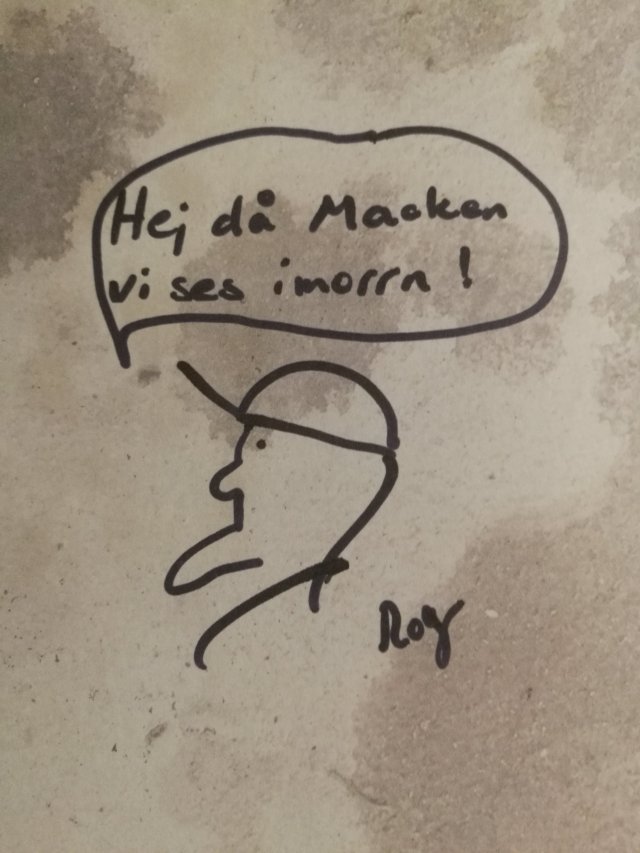 Hej då Macken
vi ses imorrn !
Roy